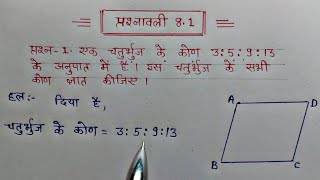 प्रश्नावली 8.1
प्रश्न-1. एक चतुर्भुज के कोण 3:5:9:13
के अनुपात में हैं। इस चतुर्भुज के सभी
कोण ज्ञात कीजिए।
हल:- दिया है,
चतुर्भुज के कोण = 3:5:9:13
A D
B C